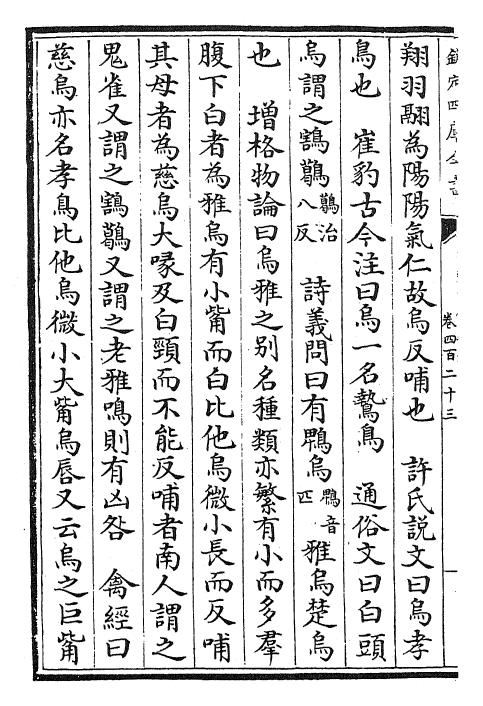 欽定四庫全書
卷四百二十三
翔羽翮為陽陽氣仁故烏反哺也　許氏説文曰烏孝
鳥也　崔豹古今注曰烏一名鷙鳥　通俗文曰白頭
烏謂之鶷鸛鸛治八反　詩義問曰有鵯烏鵯音匹雅烏楚烏
也　增格物論曰烏雅之别名種類亦繁有小而多羣
腹下白者為雅烏有小觜而白比他烏微小長而反哺
其母者為慈烏大喙及白頸而不能反哺者南人謂之
鬼雀又謂之鶷鸛又謂之老雅鳴則有凶咎　禽經曰
慈烏亦名孝鳥比他烏微小大觜烏唇又云烏之巨觜